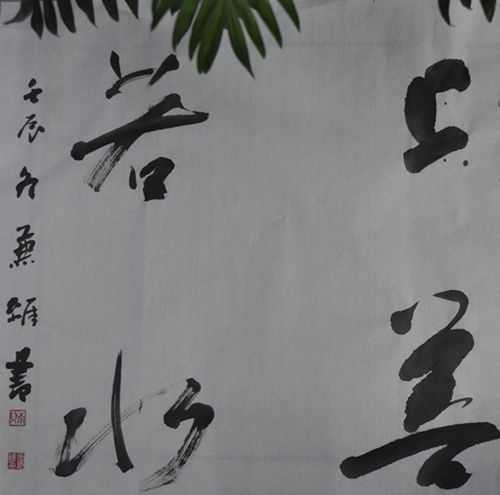 上善
若水
壬辰冬燕雄書